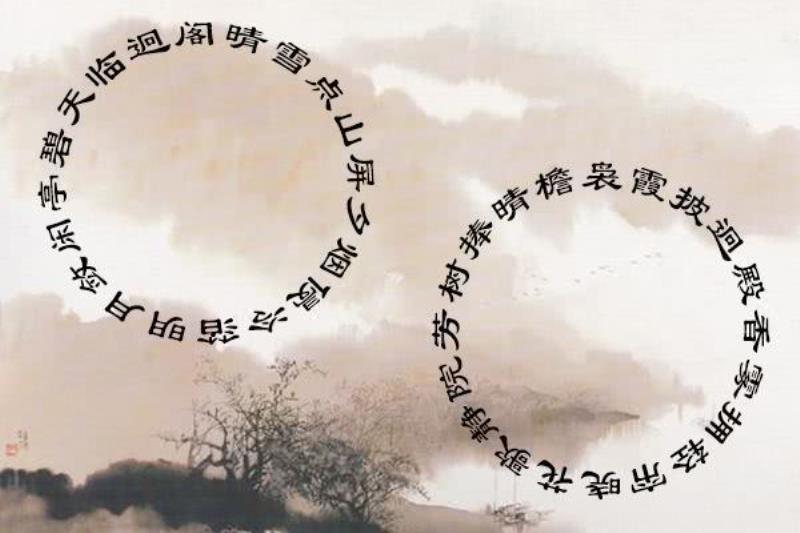 碧天临迥阁晴雪点山屏夕烟侵冷箔明月敛闲亭
袅霞披迥殿香雾拥轻帘晓花歌静院芳树捧晴檐